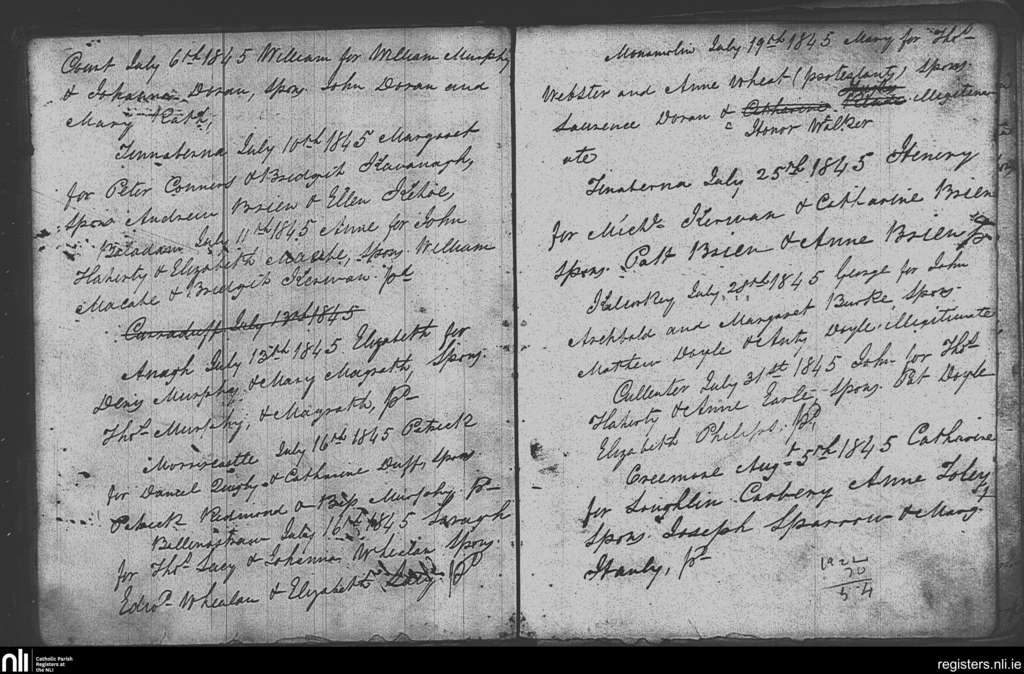 Court July 6th 1845 William for William Murphy
& Johanna Doran, Spons. John Doran and
Mary
Tinnaberna July 10th 1845 Margaret
for Peter Conners & Bridgit Kavanagh,
Spons Andrew Brien & Ellen Kehoe,
July 11th 1845 Anne for John
Flaherty & Elizabeth Macabe, Spons. William
Macabe & Bridgit Kerwan. pd
Curraduff July 13th 1845
Anagh July 13th 1845 Elizabeth for
Denis Murphy & Mary Magrath, Spons.
Thos. Murphy, & Magrath, pd
Morriscastle July 16th 1845 Patrick
for Daniel & Catharine Duff, Spons.
Patrick Redmond & Bess Murphy. pd
July 16th 1845 Saragh
for Thos. Lacy & Johanna Whealan Spons.
Edwd. Whealan & Elizabeth Lacy. pd
Monamolin July 19th 1845 Mary for Thos.
Webster and Anne Wheat (protestants) Spons.
Laurence Doran & Catharine illegitim
Honor Walker
ate
Tinaberna July 25th 1845 Henery
for Michl. Kerwan & Catharine Brien
Spons. Patt Brien & Anne Brien pd
July 28th 1845 George for John
Archbold and Margaret Burke Spons.
Mathew Doyle & Anty Doyle. illegitimate
Cullenter July 31st 1845 John for Thos.
Flaherty & Anne Earle, Spons. Pat Doyle
Elizabeth Philips. pd
Creemore Augt. 5th 1845 Catharine
for Loughlin Carbery Anne Foley
Spons. Joseph Sparrow & Mary
Hanly, pd
30
54
nli
Catholic Parish
Registers at
the NLI
registers.nli.ie